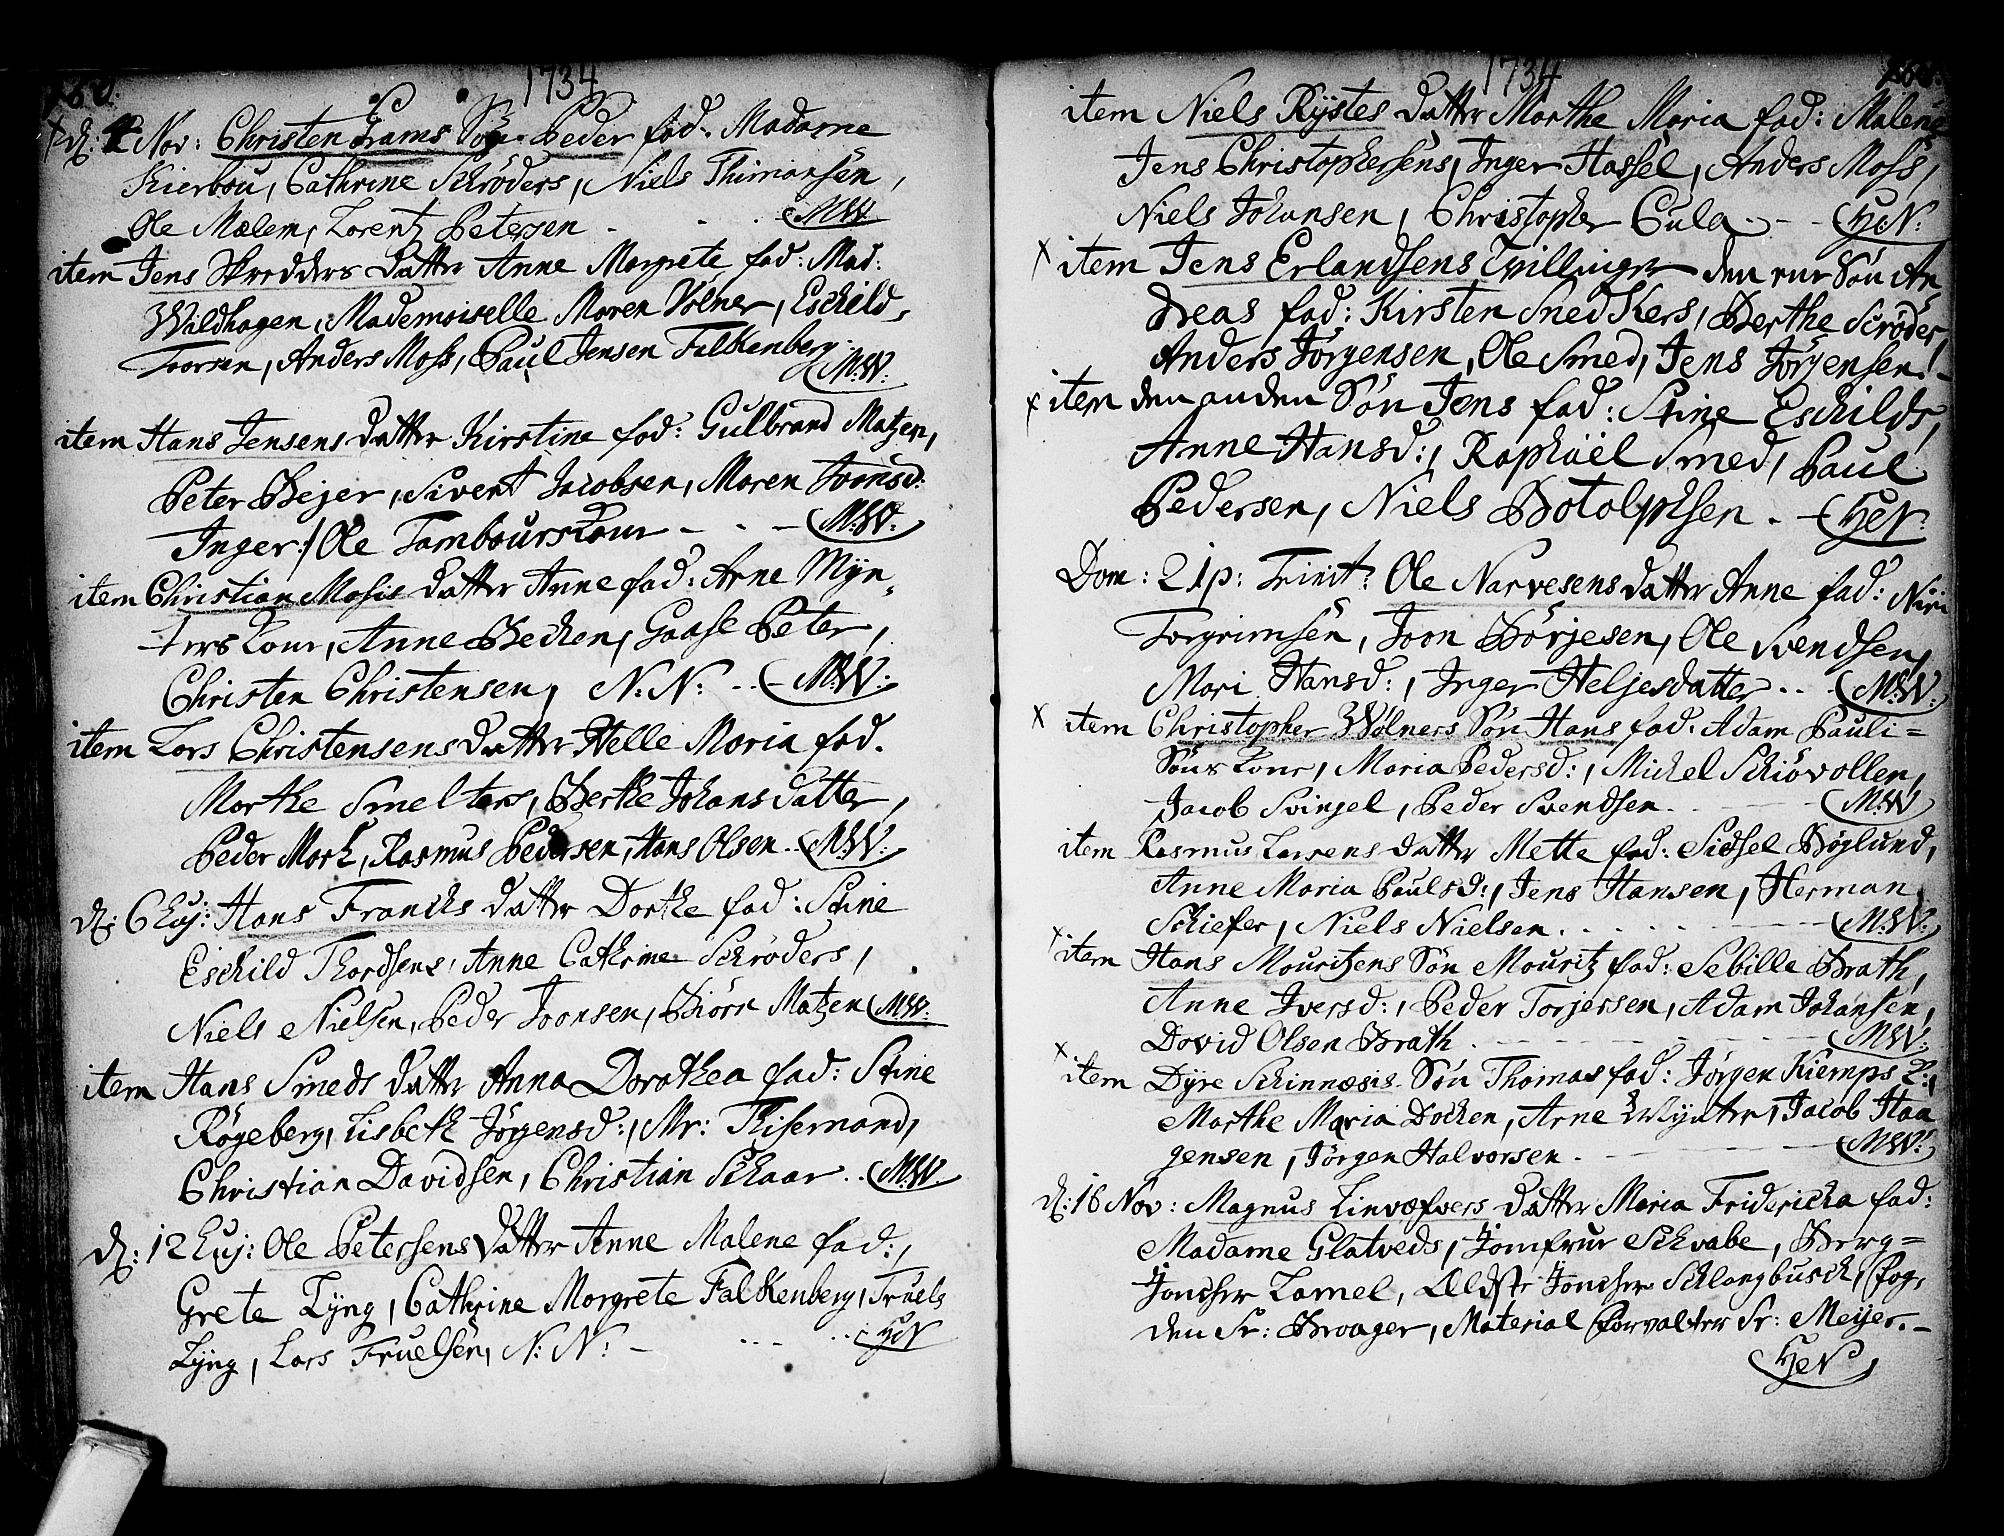 1734
d: 2 Nov: Christen Frams Søn Peder fad: Madame
Kierbou, Cathrine Schrøders, Niels Thimansen,
Ole Mælem, Lorentz Petersen - M.W.
item Jens Skredders datter Anne Margrete fad: Mad:
Wildhagen, Mademoiselle Maren Volner, Eschild
Torsen, Anders Moss, Paul Jensen Falkenberg.
M:W:
item Hans Jensens datter Kirstine fad: Gulbrand Matzen,
Peter Bejer, Sivert Jacobsen, Maren Joonsd:
Inger / Ole Tambours Kone - - - M:W:
item Christian Mosis datter Anne fad: Arne Myn-
ters Kone, Anne Becken, Gaase Peter,
Christen Christensen, N: N: - - M:W:
item Lars Christensens datter Helle Maria fad.
Marthe Smelters, Berthe Johansdatter,
Peder Mork, Rasmus Pedersen, Hans Olsen. M:W:
d: 6 huj: Hans Francks datter Dorthe fad: Stine
Eschild Thordsens, Anne Cathrine Schrøders,
Niels Nielsen, Peder Joonsen, Biørn Matzen M:W:
item Hans Smeds datter Anna Dorothea fad: Stine
Røgeberg, Lisbeth Jørgensd:, Mr: Thisemand,
Christian Davidsen, Christian Schaar. M:W:
d: 12 huj: Ole Petersens datter Anne Malene fad:,
Grete Lyng, Cathrine Margrete Falkenberg, Truels
Lyng, Lars Truelsen, N: N: - HeN
1734
item Niels Rystes datter Marthe Maria fad: Malene
Jens Christophersens, Inger Hassel, Anders Moss,
Niels Johansen, Christopher Cula. - - HeN:
x item Jens Erlandsens Tvillinger den ene Søn An
dreas fad: Kirsten Snedkers, Berthe Scrøder,
Anders Jørgensen, Ole Smed, Jens Jørgensen. -
x item den anden Søn Jens fad: Stine Eschilds,
Anne Hansd:, Raphael Smed, Paul
Pedersen, Niels Botolphsen. - HeN:
Dom: 21 p: Trinit: Ole Narvesens datter Anne fad:
Torgrimsen, Joon Børjesen, Ole Svendsen,
Mari Hansd:, Inger Heljesdatter. . . M:W:
x item Christopher Wølners Søn Hans fad: Adam Pauli=
Søns Kone, Maria Pedersd:, Michel Schiøvollen,
Jacob Svingel, Peder Svendsen. M:W
item Rasmus Larsens datter Mette fad: Sidsel Høglund,
Anne Maria Paulsd:, Jens Hansen, Herman
Schiefer, Niels Nielsen. M:W:
x item Hans Mouritzens Søn Mouritz fad: Sebille Brath,
Anne Iversd:, Peder Torjersen, Adam Johansen,
David Olsen Brath. M:W:
x item Dyre Schinnæsis Søn Thomas fad: Jørgen Kiemps K:,
Marthe Maria Docken, Arne Mynter, Jacob Haa
gensen, Jørgen Halvorsen. M:W:
d: 16 Nov: Magnus Linvæfvers datter Maria Fridericha fad:
Madame Glatveds, Jomfrue Schvabe, Berg=
Joncher Lamel, Ældste Joncher Schlangbusch, Fog,
den Sr: Brager, Material Forvalter Sr: Meijer. -
HeN